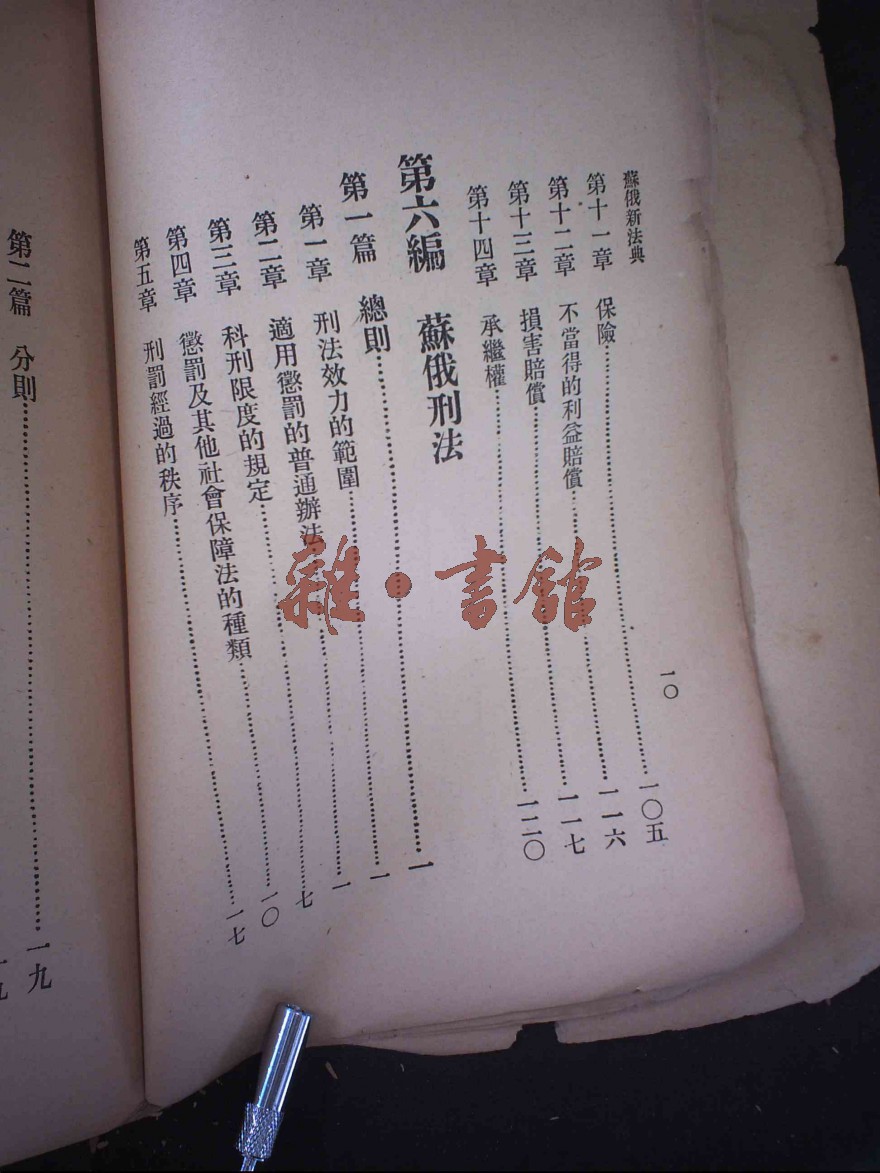 蘇俄新法典 一〇
第十一章 保險……一〇五
第十二章 不當得的利益賠償……一一六
第十三章 損害賠償……一一七
第十四章 承繼權……一二〇
第六編 蘇俄刑法
第一篇 總則……一
第一章 刑法效力的範圍……一
第二章 適用懲罰的普通辦法……一
第三章 科刑限度的規定……七
第四章 懲罰及其他社會保障法的種類……一〇
第五章 刑罰經過的秩序……一七
第二篇 分則……一九
雜·書館